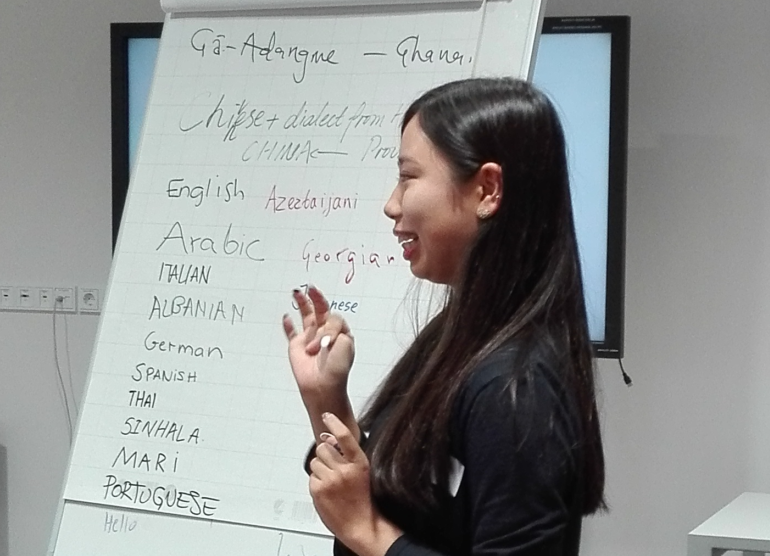 Gã-Adangme — Ghana.
Chinese + dialect from
CHINA
English Azerbaijani
Arabic Georgian
ITALIAN
ALBANIAN
German
SPANISH
THAI
SINHALA.
MARI
PORTUGUESE
Hello